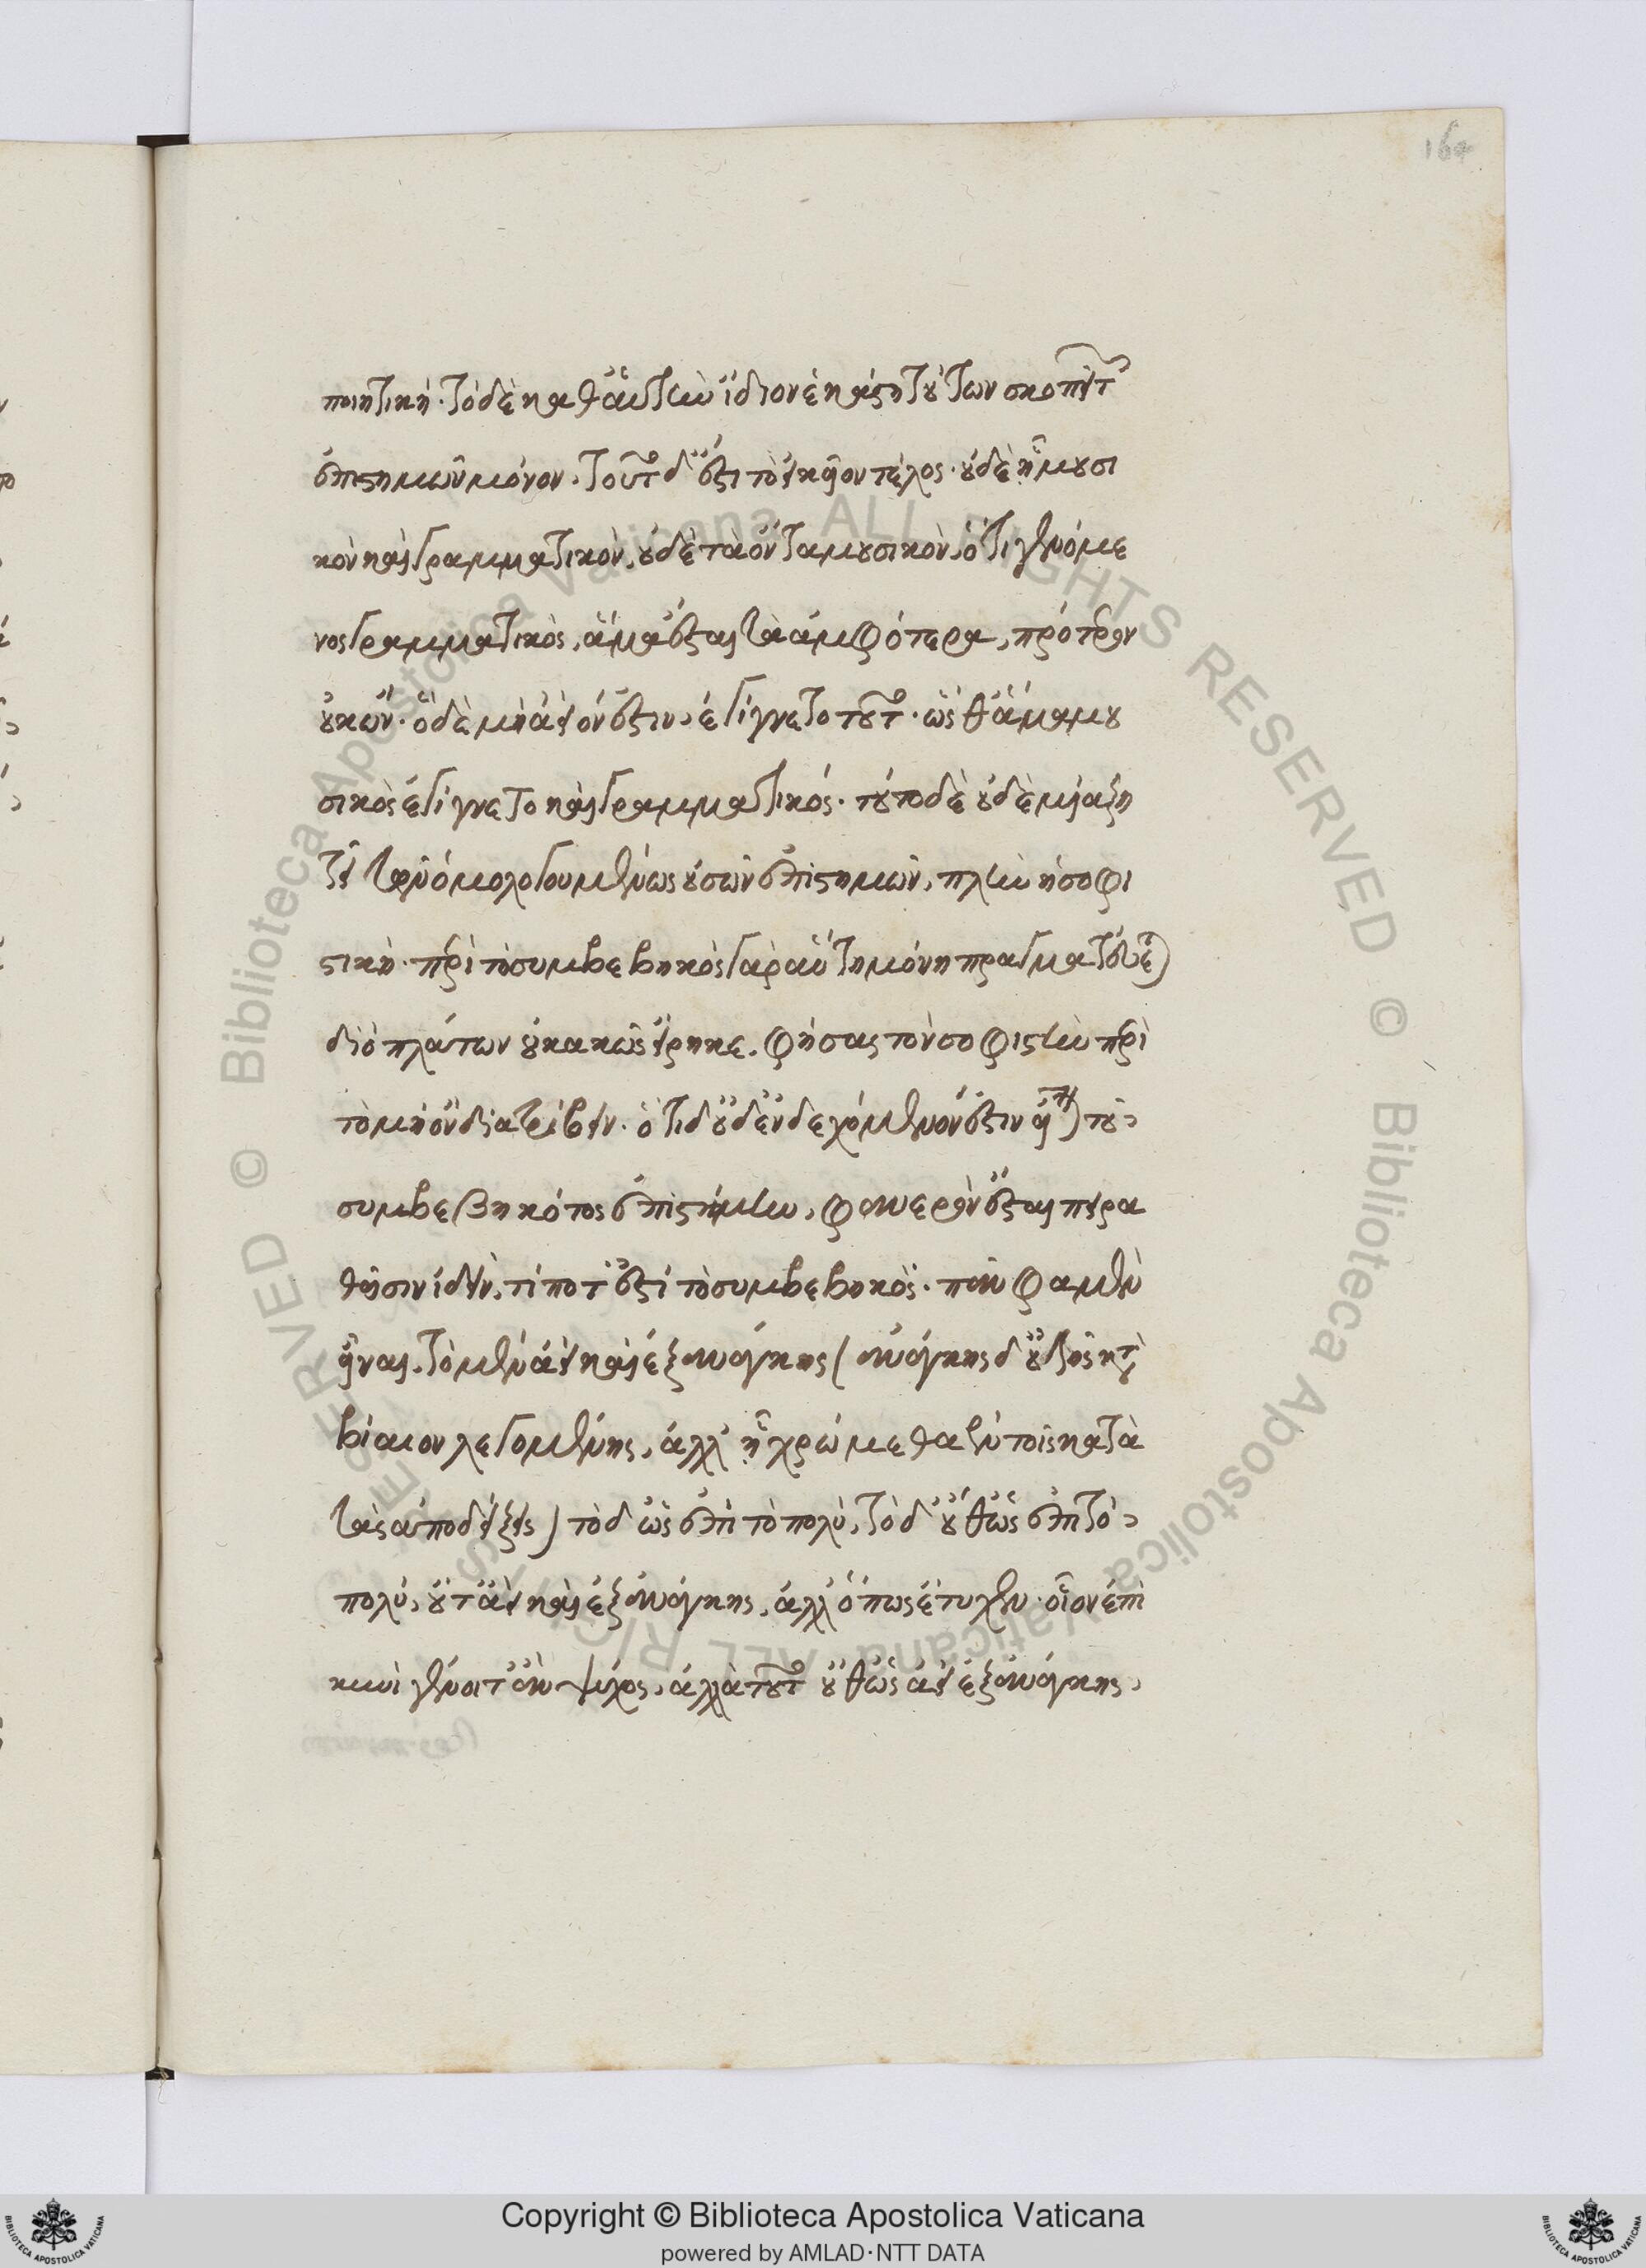 164
ποιητική. τὸ δὲ καθ' αὑτὴν ἴδιον ἑκάστη τούτων σκοπεῖ τῶν
ἐπιστημῶν μόνον. τοῦτ' δ' ἐστὶ τὸ ἑκάστου τέλος. οὐδὲ ᾗ μουσι
κὸν καὶ γραμματικὸν, οὐδὲ τὰ ὄντα μουσικὸν, ὅτι γενόμε
νος γραμματικὸς, ἅμα ἔσται τὰ ἀμφότερα, πρότερον
οὐκ ὤν. ὃ δὲ μὴ ἀεὶ ὂν ἔστιν, ἐγίγνετο τοῦτο. ὥσθ' ἅμα μου
σικὸς ἐγίγνετο καὶ γραμματικός. τοῦτο δὲ οὐδὲ μία ζη
τεῖ τῶν ὁμολογουμένως οὐσῶν ἐπιστημῶν, πλὴν ἡ σοφι
στική. περὶ τὸ συμβεβηκὸς γὰρ αὕτη μόνη πραγματεύεται
διὸ πλάτων οὐ κακῶς εἴρηκε. φήσας τὸν σοφιστὴν περὶ
τὸ μὴ ὂν διατρίβειν. ὅτι δ' οὐδ' ἐνδεχόμενόν ἐστιν εἶναι τοῦ
συμβεβηκότος ἐπιστήμην, φανερὸν ἔσται πειρα
θεῖσιν ἰδεῖν, τί ποτ' ἐστὶ τὸ συμβεβηκός. πᾶν φαμὲν
εἶναι. τὸ μὲν ἀεὶ καὶ ἐξ ἀνάγκης (ἀνάγκης δ' οὐ τῆς κατὰ τὸ
βίαιον λεγομένης, ἀλλ' ᾗ χρώμεθα ἐν τοῖς κατὰ
τὰς ἀποδείξεις) τὸ δ' ὡς ἐπὶ τὸ πολύ, τὸ δ' οὔθ' ὡς ἐπὶ τὸ
πολύ, οὔτ' ἀεὶ καὶ ἐξ ἀνάγκης, ἀλλ' ὅπως ἔτυχεν. οἷον ἐπὶ
κυνὶ γένοιτ' ἂν ψύχος, ἀλλὰ τοῦτ' οὔθ' ὡς ἀεὶ ἐξ ἀνάγκης,
Copyright © Biblioteca Apostolica Vaticana
powered by AMLAD·NTT DATA